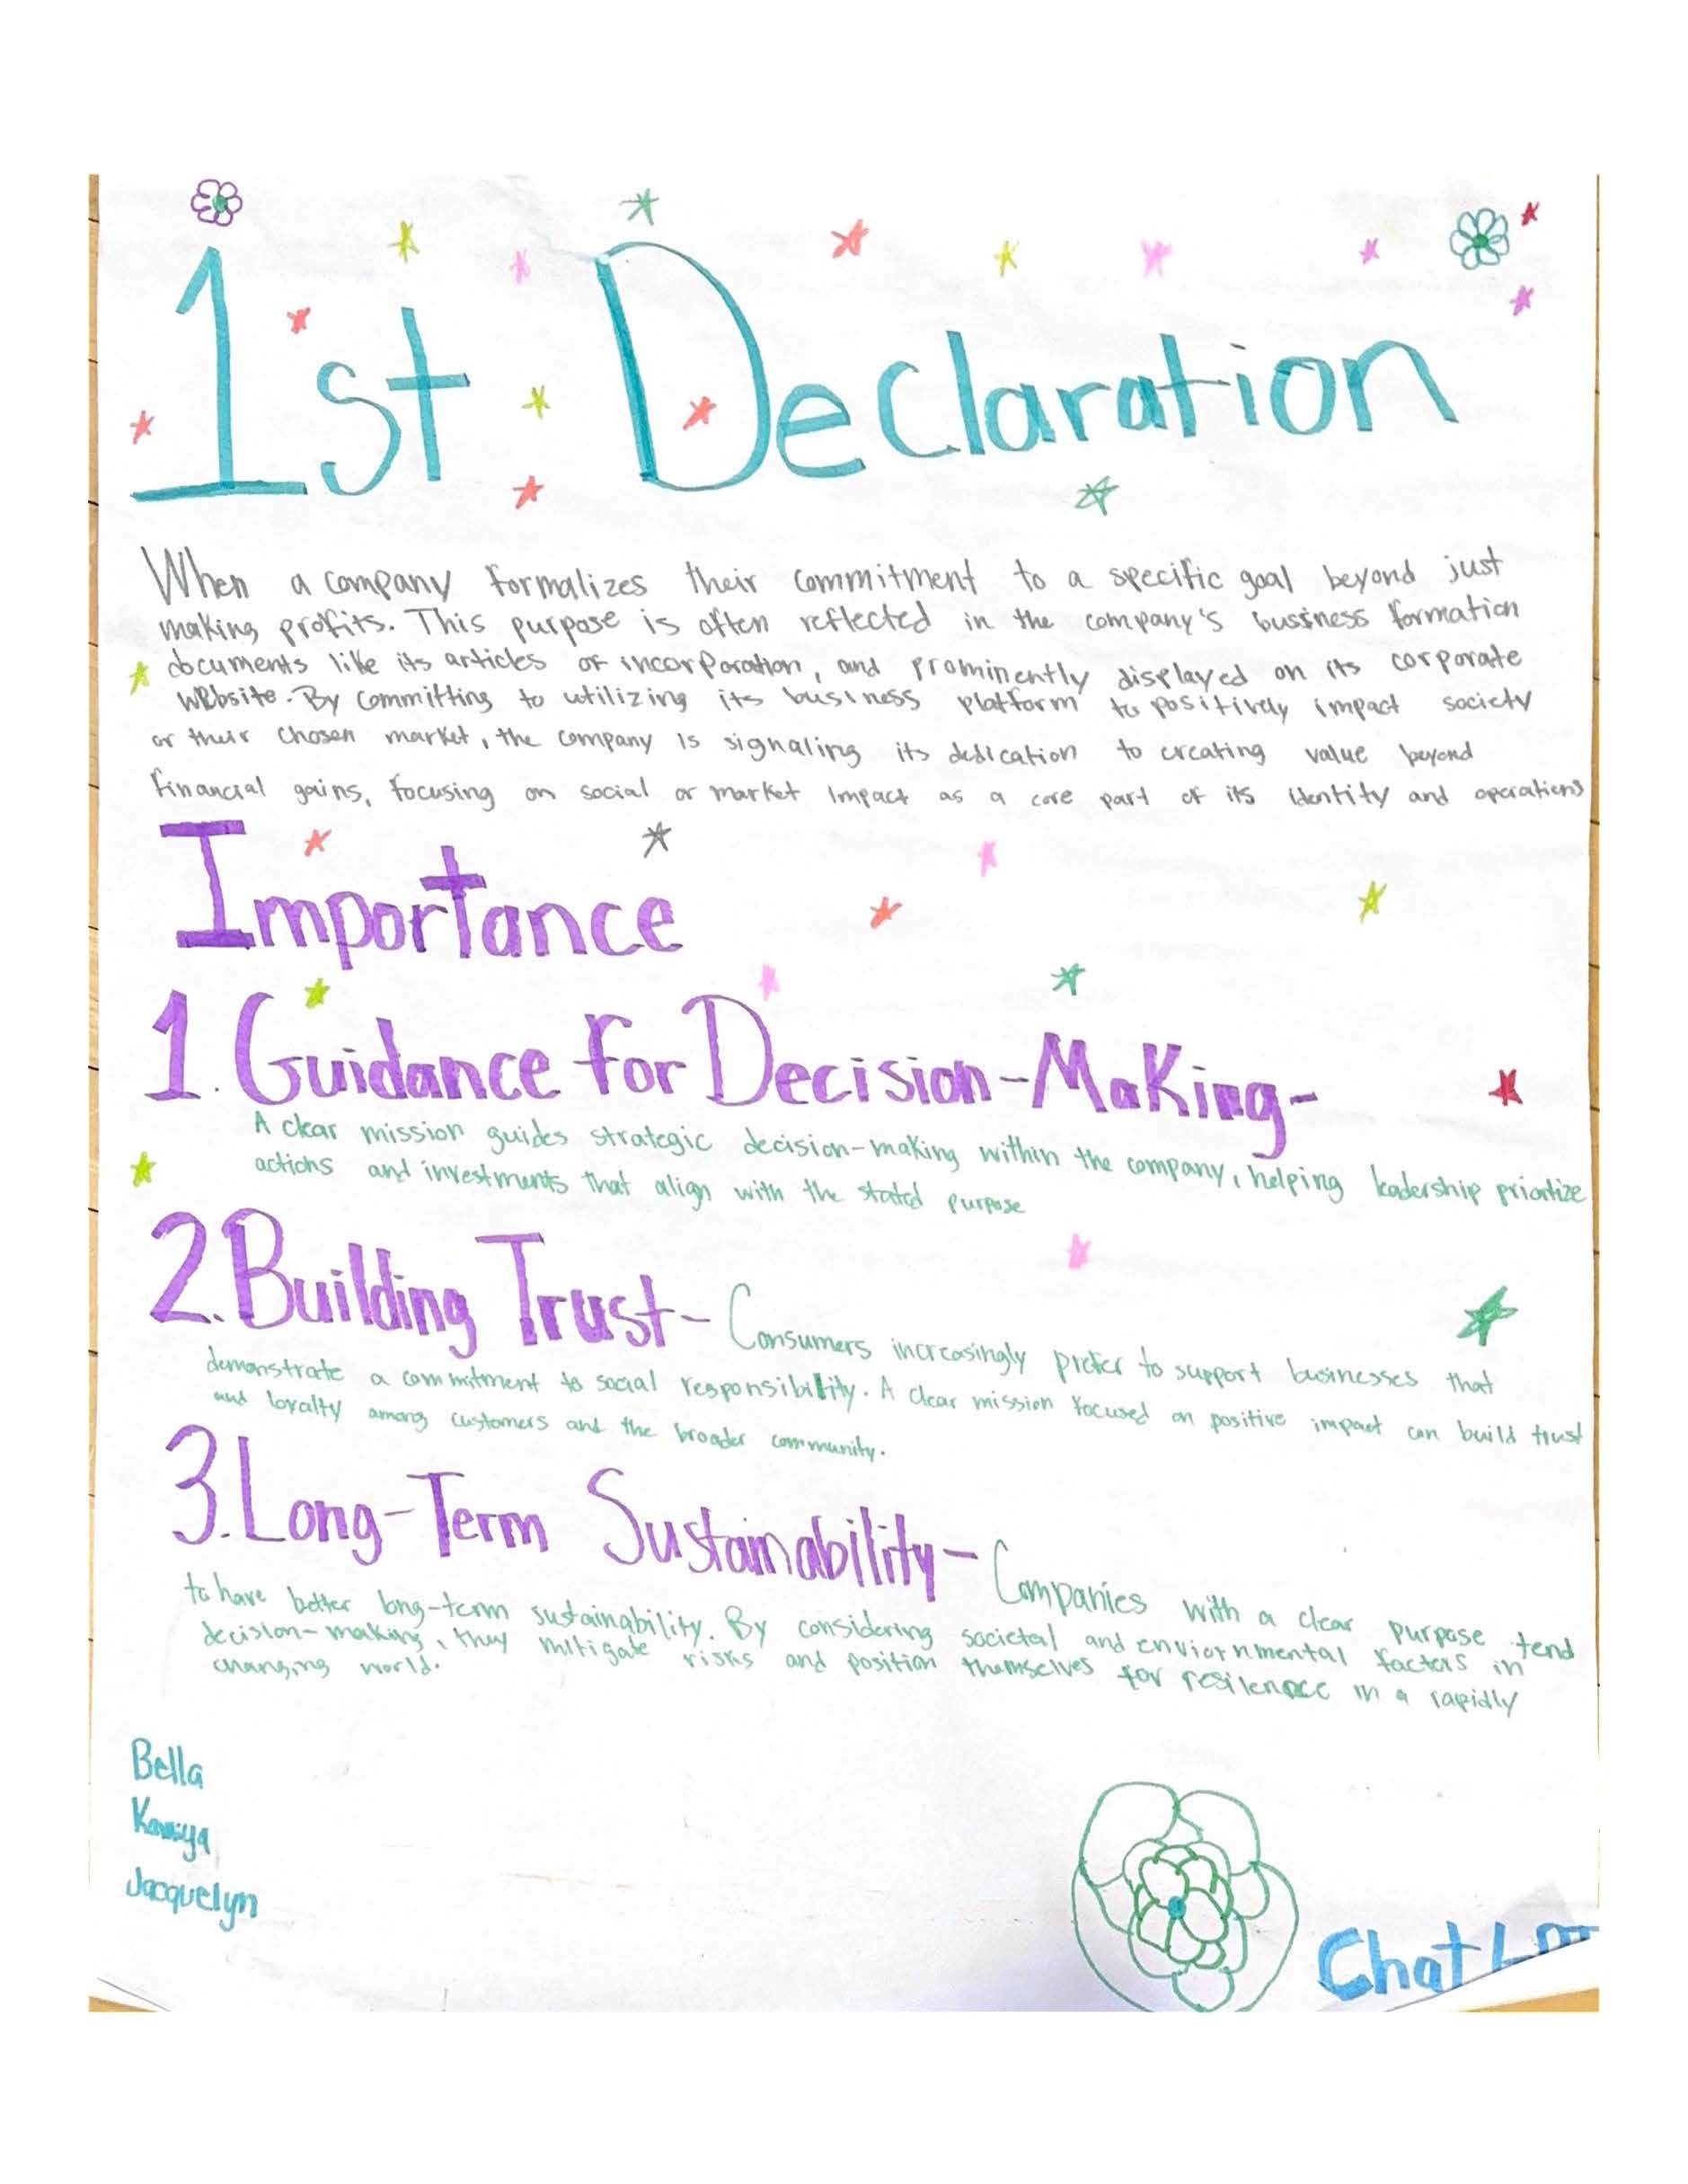 1st Declaration
When a company formalizes their commitment to a specific goal beyond just
making profits. This purpose is often reflected in the company's business formation
documents like its articles of incorporation, and prominently displayed on its corporate
website. By committing to utilizing its business platform to positively impact society
or their chosen market, the company is signaling its dedication to creating value beyond
financial gains, focusing on social or market impact as a core part of its identity and operations
Importance
1. Guidance for Decision-Making-
A clear mission guides strategic decision-making within the company, helping leadership priortize
actions and investments that align with the stated purpose
2. Building Trust- Consumers increasingly prefer to support businesses that
demonstrate a commitment to social responsibility. A clear mission focused on positive impact can build trust
and loyalty among customers and the broader community.
3. Long-Term Sustainability- Companies with a clear purpose tend
to have better long-term sustainability. By considering societal and enviornmental factors in
decision-making, they mitigate risks and position themselves for resilence in a rapidly
changing world.
Bella
Jacquelyn
Chat